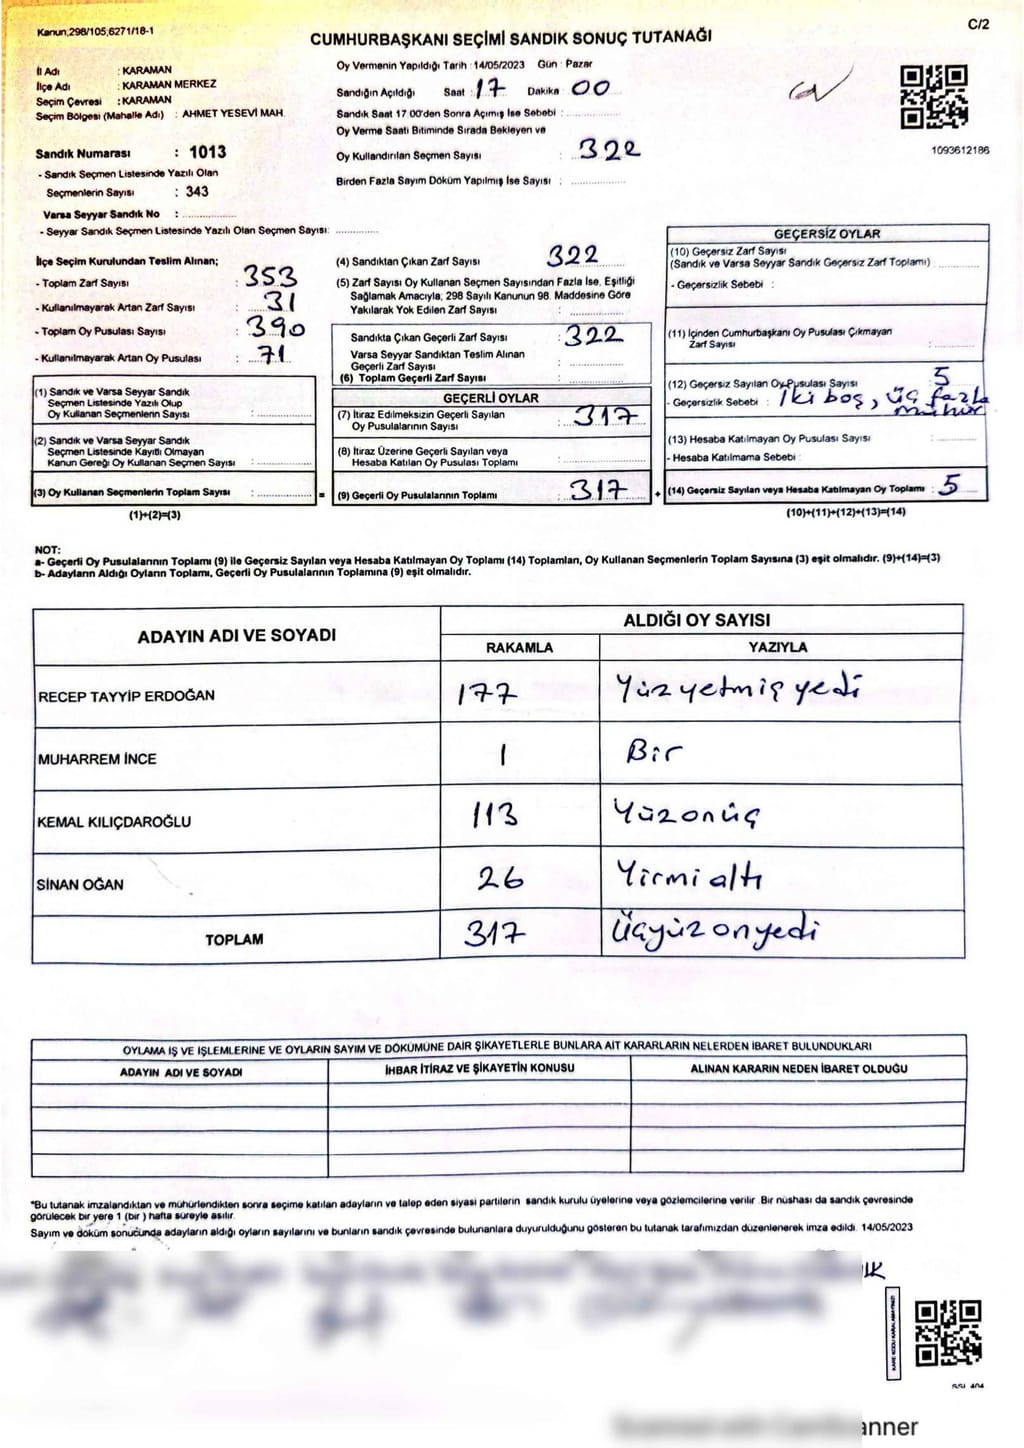 Kanun,298/105,6271/18-1
C/2
CUMHURBAŞKANI SEÇİMİ SANDIK SONUÇ TUTANAĞI
İl Adı : KARAMAN
İlçe Adı : KARAMAN MERKEZ
Seçim Çevresi : KARAMAN
Seçim Bölgesi (Mahalle Adı) : AHMET YESEVİ MAH.
Sandık Numarası : 1013
- Sandık Seçmen Listesinde Yazılı Olan
Seçmenlerin Sayısı : 343
Varsa Seyyar Sandık No : ................
- Seyyar Sandık Seçmen Listesinde Yazılı Olan Seçmen Sayısı: ............
Oy Vermenin Yapıldığı Tarih : 14/05/2023 Gün : Pazar
Sandığın Açıldığı Saat : 17 Dakika : 00
Sandık Saat 17.00'den Sonra Açımış İse Sebebi : ................
Oy Verme Saati Bitiminde Sırada Bekleyen ve
Oy Kullandırılan Seçmen Sayısı : 322
Birden Fazla Sayım Döküm Yapılmış İse Sayısı : ................
1093612186
İlçe Seçim Kurulundan Teslim Alınan;
- Toplam Zarf Sayısı : 353
- Kullanılmayarak Artan Zarf Sayısı : 31
- Toplam Oy Pusulası Sayısı : 390
- Kullanılmayarak Artan Oy Pusulası : 71
(1) Sandık ve Varsa Seyyar Sandık
Seçmen Listesinde Yazılı Olup
Oy Kullanan Seçmenlerin Sayısı : ................
(2) Sandık ve Varsa Seyyar Sandık
Seçmen Listesinde Kayıtlı Olmayan
Kanun Gereği Oy Kullanan Seçmen Sayısı : ................
(3) Oy Kullanan Seçmenlerin Toplam Sayısı : ................ =
(1)+(2)=(3)
(4) Sandıktan Çıkan Zarf Sayısı 322
(5) Zarf Sayısı Oy Kullanan Seçmen Sayısından Fazla İse, Eşitliği
Sağlamak Amacıyla; 298 Sayılı Kanunun 98. Maddesine Göre
Yakılarak Yok Edilen Zarf Sayısı : ................
Sandıkta Çıkan Geçerli Zarf Sayısı : 322
Varsa Seyyar Sandıktan Teslim Alınan
Geçerli Zarf Sayısı : ................
(6) Toplam Geçerli Zarf Sayısı : ................
GEÇERLİ OYLAR
(7) İtiraz Edilmeksizin Geçerli Sayılan
Oy Pusulalarının Sayısı : 317
(8) İtiraz Üzerine Geçerli Sayılan veya
Hesaba Katılan Oy Pusulası Toplamı : ................
(9) Geçerli Oy Pusulalarının Toplamı : 317 +
GEÇERSİZ OYLAR
(10) Geçersiz Zarf Sayısı
(Sandık ve Varsa Seyyar Sandık Geçersiz Zarf Toplamı) : ............
- Geçersizlik Sebebi :
(11) İçinden Cumhurbaşkanı Oy Pusulası Çıkmayan
Zarf Sayısı : ............
(12) Geçersiz Sayılan Oy Pusulası Sayısı 5
- Geçersizlik Sebebi : İki boş, üç fazla
mühür
(13) Hesaba Katılmayan Oy Pusulası Sayısı : ............
- Hesaba Katılmama Sebebi :
(14) Geçersiz Sayılan veya Hesaba Katılmayan Oy Toplamı : 5
(10)+(11)+(12)+(13)=(14)
NOT:
a- Geçerli Oy Pusulalarının Toplamı (9) ile Geçersiz Sayılan veya Hesaba Katılmayan Oy Toplamı (14) Toplamları, Oy Kullanan Seçmenlerin Toplam Sayısına (3) eşit olmalıdır. (9)+(14)=(3)
b- Adayların Aldığı Oyların Toplamı, Geçerli Oy Pusulalarının Toplamına (9) eşit olmalıdır.
ADAYIN ADI VE SOYADI ALDIĞI OY SAYISI
RAKAMLA YAZIYLA
RECEP TAYYİP ERDOĞAN 177 Yüz yetmiş yedi
MUHARREM İNCE 1 Bir
KEMAL KILIÇDAROĞLU 113 Yüzonüç
SİNAN OĞAN 26 Yirmi altı
TOPLAM 317 Üçyüz onyedi
OYLAMA İŞ VE İŞLEMLERİNE VE OYLARIN SAYIM VE DÖKÜMÜNE DAİR ŞİKAYETLERLE BUNLARA AİT KARARLARIN NELERDEN İBARET BULUNDUKLARI
ADAYIN ADI VE SOYADI İHBAR İTİRAZ VE ŞİKAYETİN KONUSU ALINAN KARARIN NEDEN İBARET OLDUĞU
*Bu tutanak imzalandıktan ve mühürlendikten sonra seçime katılan adayların ve talep eden siyasi partilerin sandık kurulu üyelerine veya gözlemcilerine verilir. Bir nüshası da sandık çevresinde
görülecek bir yere 1 (bir ) hafta süreyle asılır.
Sayım ve döküm sonucunda adayların aldığı oyların sayılarını ve bunların sandık çevresinde bulunanlara duyurulduğunu gösteren bu tutanak tarafımızdan düzenlenerek imza edildi. 14/05/2023